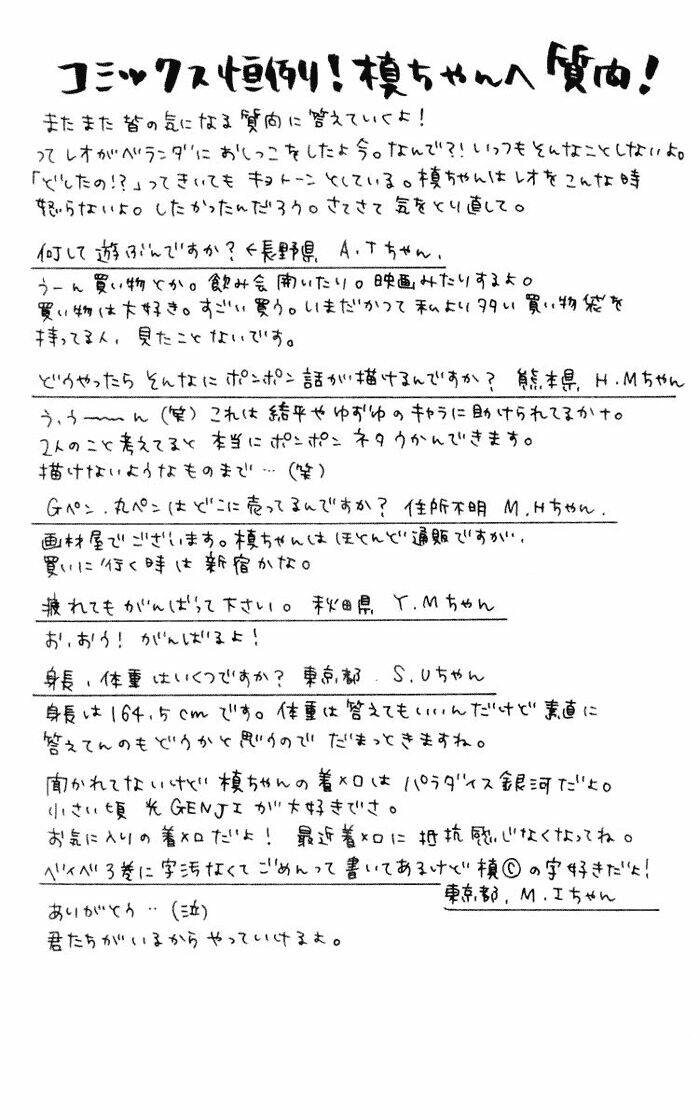 コミックス恒例!槙ちゃんへ質問!
またまた皆の気になる質問に答えていくよ!
ってレオがベランダにおしっこをしたよ今。なんで?!いっつもそんなことしないよ。
「どしたの!?」ってきいてもキョトーンとしている。槙ちゃんはレオをこんな時
怒らないよ。したかったんだろう。さてさて気をとり直して。
何して遊ぶんですか?←長野県 A.Tちゃん.
うーん買い物とか。飲み会開いたり。映画みたりするよ。
買い物は大好き。すごい買う。いまだかつて私より多い買い物袋を
持ってる人、見たことないです。
どうやったらそんなにポンポン話が描けるんですか? 熊本県 H.Mちゃん
う、う〜〜ん(笑)これは綺平やゆずゆのキャラに助けられてるかナ。
2人のこと考えてると本当にポンポンネタうかんできます。
描けないようなものまで…(笑)
Gペン.丸ペンはどこに売ってるんですか? 住所不明 M.Hちゃん.
画材屋でございます。槙ちゃんはほとんど通販ですが、
買いに行く時は新宿かな。
疲れてもがんばって下さい。 秋田県 Y.Mちゃん
お、おう!がんばるよ!
身長、体重はいくつですか? 東京都. S.Uちゃん
身長は164.5cmです。体重は答えてもいいんだけど素直に
答えてんのもどうかと思うので だまっときますね。
聞かれてないけど槙ちゃんの着メロはパラダイス銀河だよ。
小さい頃 光GENJIが大好きでさ。
お気に入りの着メロだよ! 最近着メロに抵抗感じなくなってね。
ベイベ3巻に字汚なくてごめんって書いてあるけど槙©の字好きだよ!
東京都. M.Iちゃん
ありがとう‥(泣)
君たちがいるからやっていけるよ。